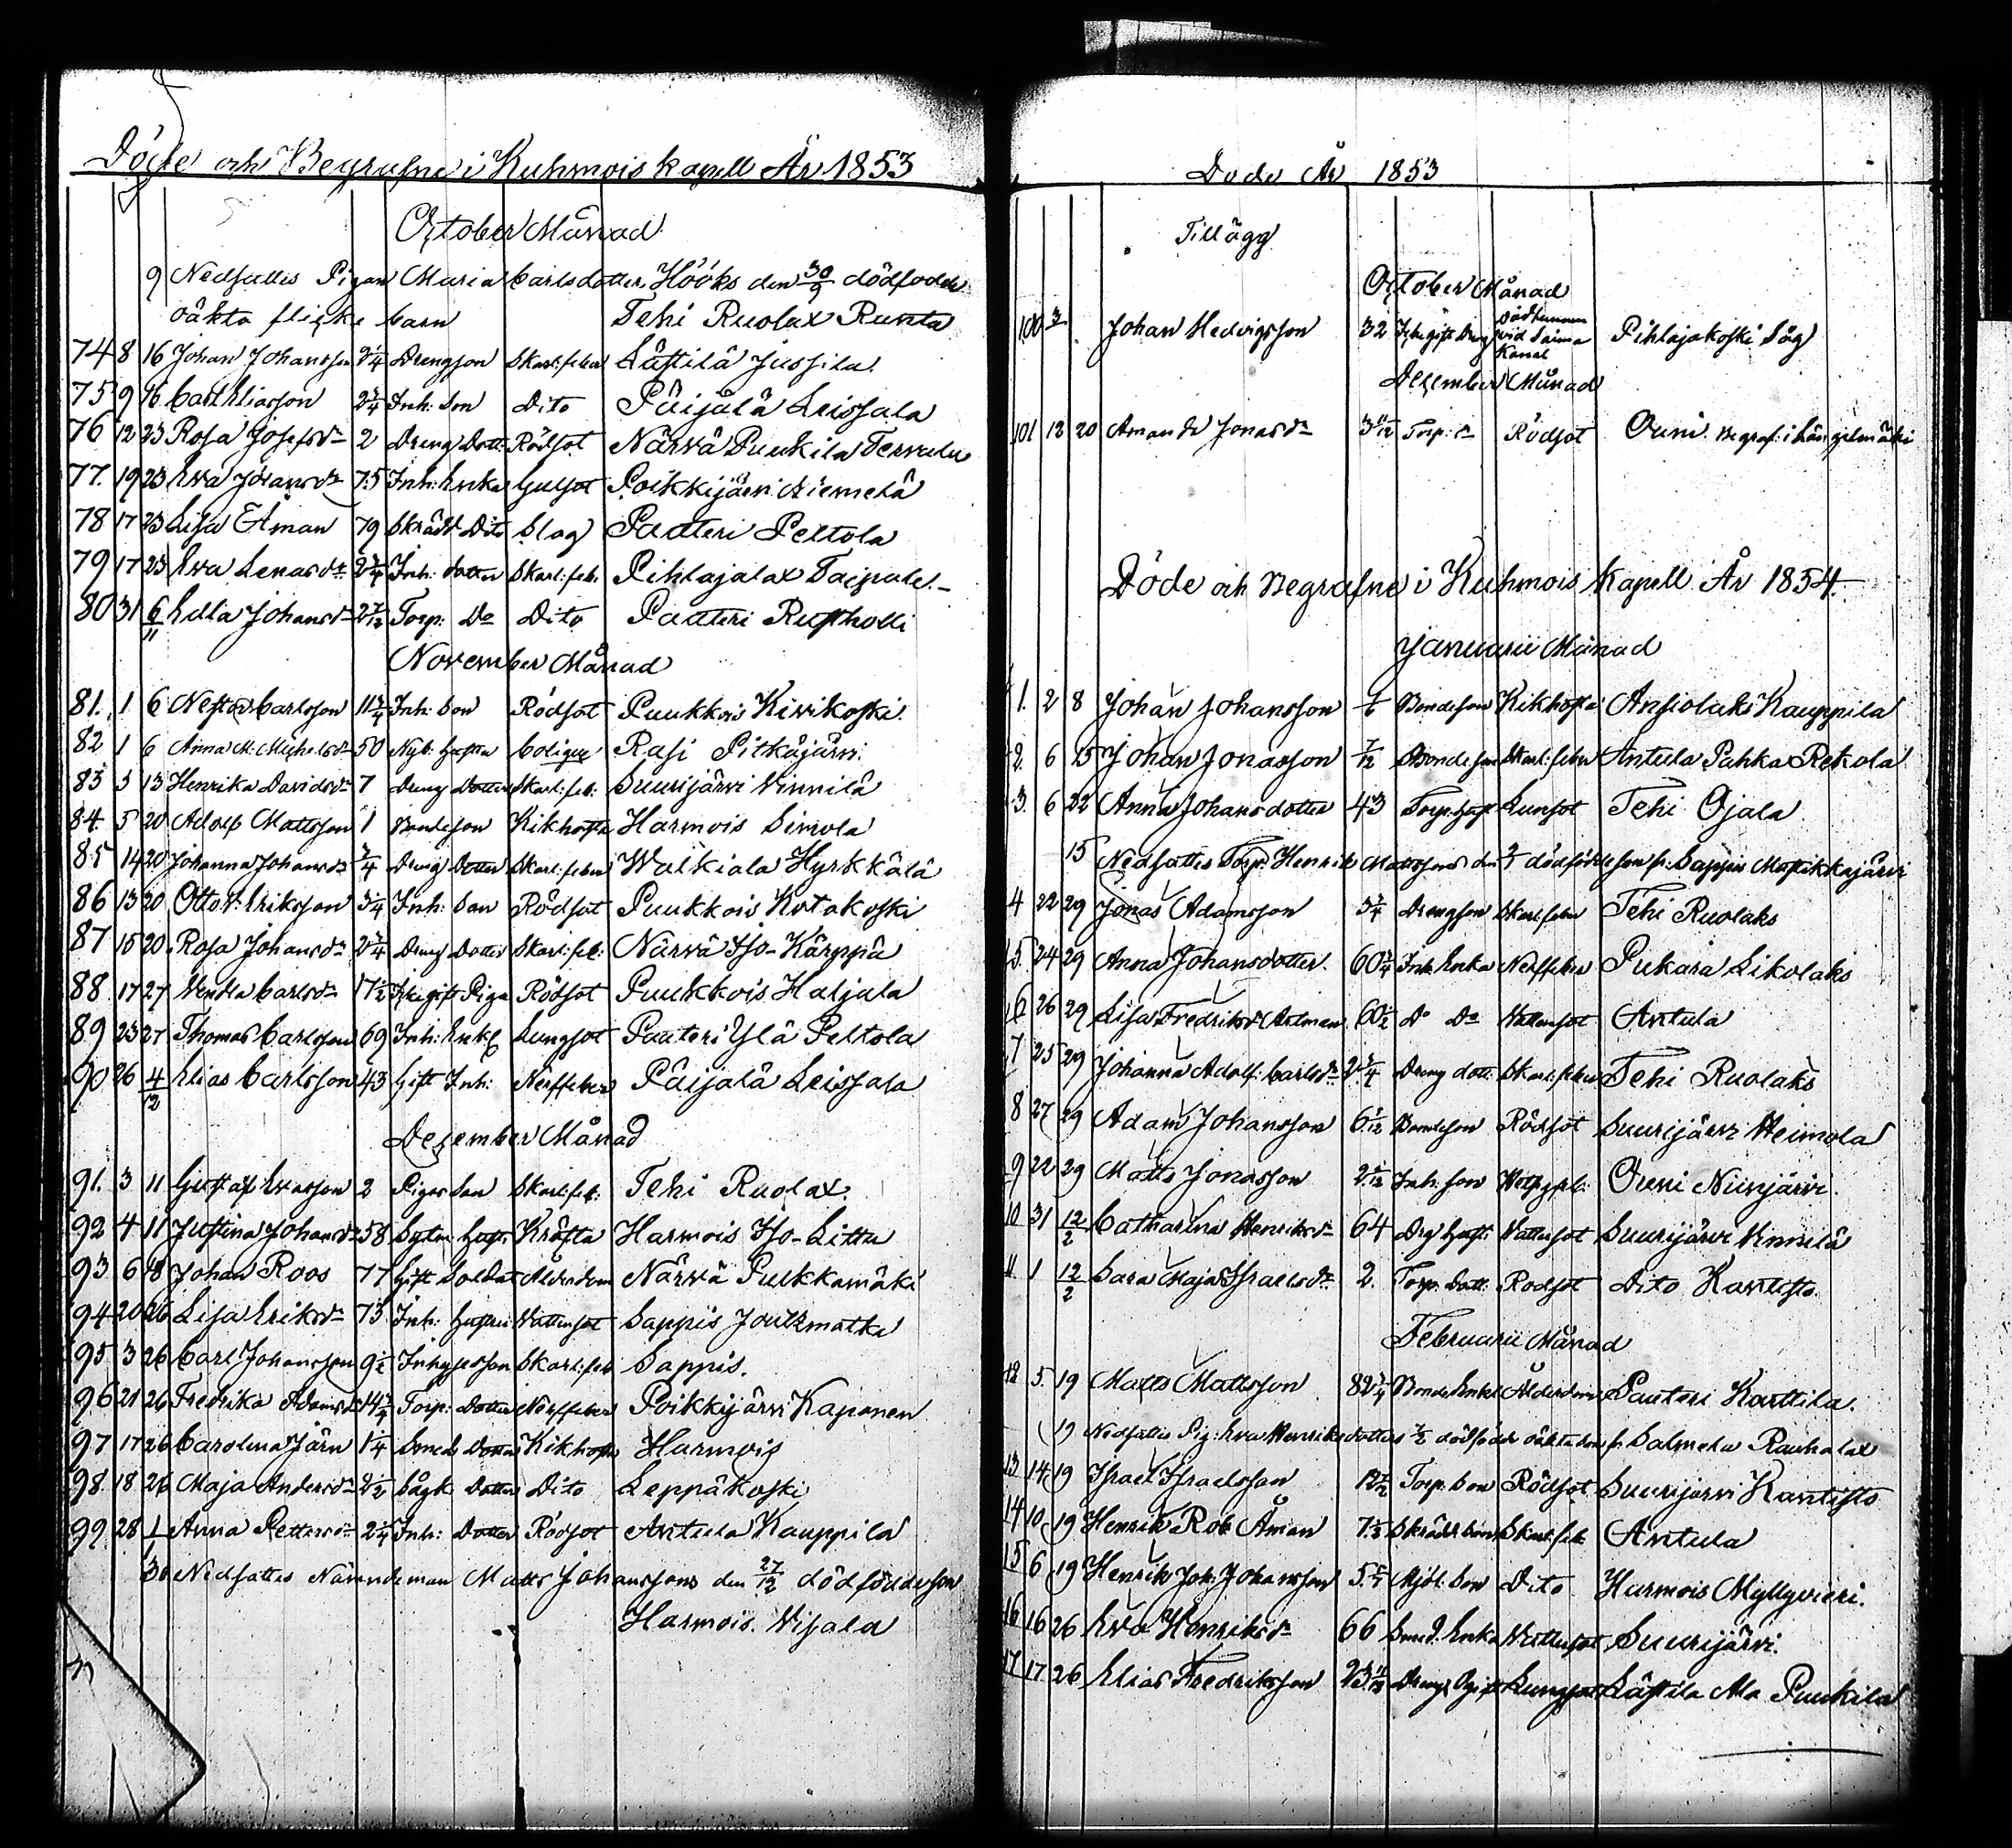 Döde och Begrafne i Kuhmois kapell År 1853
October Månad
9 Nedsattes Pigan Maria Carlsdotter Hööks den 30/9 dödfödde
oäkta flicke barn Tehi Ruolax Runta
74 8 16 Johan Johansson 2 1/4 Drengson Skarl: feber Lästilä Jussila
75 9 16 Carl Eliasson Inh: Son Dito Päijälä Leissala
76 12 23 Rosa Josefsdr 2 Dreng Dott: Rödsot Närvä Puukila Tervala
77. 19 23 Eva Johansdr 75 Inh: Enka Gulsot Poikkijärvi Niemelä
78 17 23 Lisa Åman 79 Skrädd Dito Slag Paateri Peltola
79 17 23 Eva Lenasdr Inh: dotter Skarl: feb: Pihlajalax Taipale.-
80 31 6/11 Edla Johansdr Torp: Do Dito Paateri Rustholli
November Månad
81. 1 6 Nestor Carlsson Inh: Son Rödsot Puukkois Kivikoski.
82 1 6 Anna M: Michelsdr 50 Nyb: Hustru Colique Rasi Pitkäjärvi
83 5 13 Henrika Davidsdr 7 Dreng Dotter Skarl: feb: Suurijärvi Vinnilä
84. 5 20 Adolf Mattsson 1 Bondeson Kikhosta Harmois Simola
85 14 20 Johanna Johansdr Dreng Dotter Skarl: feber Walkiala Hyrkkälä
86 13 20 Otto V: Eriksson 3 1/4 Inh: Son Rödsot Puukkois Kotakoski
87 15 20 Rosa Johansdr Dreng Dotter Skarl: feb: Närvä Iso-Kärppä
88 17 27 Vendla Carlsdr 17 1/2 Ogift Piga Rödsot Puukkois Haljala
89 23 27 Thomas Carlsson 69 Inh: Enkl Lungsot Paateri Ylä Peltola
90 26 4/12 Elias Carlsson 43 Gift Inh: Nerffeber Päijälä Leissala
December Månad
91. 3 11 Gustaf Evasson 2 Pigas Son Skarl: feb: Tehi Ruolax.
92 4 11 Justina Johansdr 58 Sytn: Hust: Kräfta Harmois Iso-Littu
93 6 18 Johan Roos 77 Gift Soldat Ålderdom Närvä Pukkamäki
94 20 26 Lisa Eriksdr 73 Inh: Hustru Vattusot Sappis Joutzmatka
95 3 26 Carl Johansson 9 1/2 Inhysesson Skarl: feb Sappis.
96 21 26 Fredrika Adamsdr Torp: Dotter Nerffeber Poikkijärvi Kaponen
97 17 26 Carolina Järn 1 1/4 Smeds Dotter Kikhosta Harmois
98. 18 26 Maja Andersdr 2 1/2 Sågk: Dotter Dito Leppäkoski
99 28 1/1 Anna Pettersdr 2 1/4 Inh: Dotter Rödsot Antula Kauppila
30 Nedsattes Nämndeman Matts Johanssons den 27/12 dödfödde son
Harmois. Visala
Döde År 1853
Tillägg
October Månad
100 3 Johan Hedvigsson 32 Ogift Dreng vid Saima Kanal Pihlajakoski Såg
December Månad
101 12 20 Amanda Jonasdr Torp: dr Rödsot Ouni. Begraf: i Längelmäki
Döde och Begrafne i Kuhmois Kapell År 1854.
Januarii Månad
1. 2 8 Johan Johansson Bondeson Kikhosta Ansiolaks Kauppila
2. 6 15 Johan Jonasson 7/12 Bondeson Skarl: feber Antula Pahka Rekola
3. 6 22 Anna Johansdotter 43 Torp: hust Lunsot Tehi Ojala
15 Nedsattes Torp: Henrik Mattssons den dödfödde son fr: Sappis Mustikkajärvi
4 22 29 Jonas Adamsson Drengson Skarl: feber Tehi Ruolaks
5. 24 29 Anna Johansdotter. Inh: Enka Nerffeber Pukara Likolaks
6 26 29 Lisa Fredriksdr Artman 60 1/2 Do Do Vattusot Antula
7 25 29 Johanna Adolf: Carlsdr Dreng dott: Skarl: feber Tehi Ruolaks
8 27 29 Adam Johansson Bondeson Rödsot Suurijärvi Heimola
9 22 29 Matts Jonasson Inh: son Ouni Niinjärvi.
10 31 12/2 Catharina Henriksdr 64 Drg Hust: Vattusot Suurijärvi
11. 1 12/2 Sara Maja Israelsdr 2. Torp: Dott: Rödsot Dito Kantisto
Februarii Månad
12 5. 19 Matts Mattsson Bonde Enkl Ålderdom Pauteri Kanttila.
19 Nedsattes Pig: Eva Henriksdotters dödfödde oäkta son fr: Salmela Rauhalax
13 14 19 Israel Israelsson Torp: Son Rödsot Suurijärvi Kantisto
14 10 19 Henrik Rob Åman 7 1/2 Skrädd: son Skarl: feb Antula
15 6 19 Henrik Joh: Johansson Mjöl: Son Dito Harmois Myllyvieri.
16 16 26 Eva Henriksdr 66 Smed. Enka Vattusot Suurijärvi.
17 17 26 Elias Fredriksson Dreng Ogift Lungsot Lästilä Ala Puukila